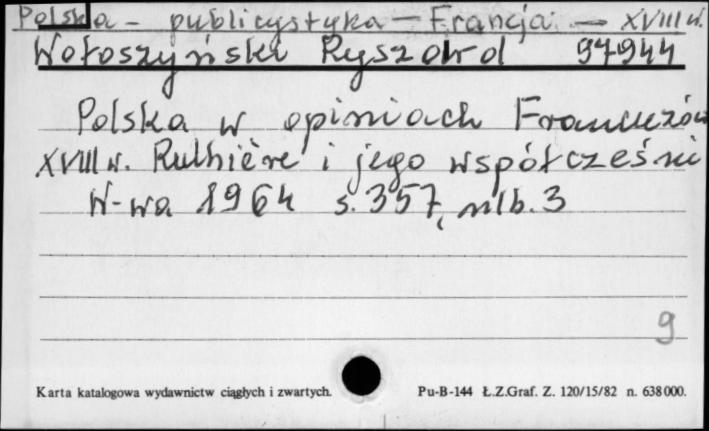 Polska - publicystyka - Francja - XVIII w.
Wołoszyński Ryszard 97944
Polska w opiniach Francuzów
XVIII w. Rulhière i jego współcześni
W-wa 1964 s. 357, nlb. 3
9
Karta katalogowa wydawnictw ciągłych i zwartych. Pu-B-144 Ł.Z.Graf. Z. 120/15/82 n. 638000.